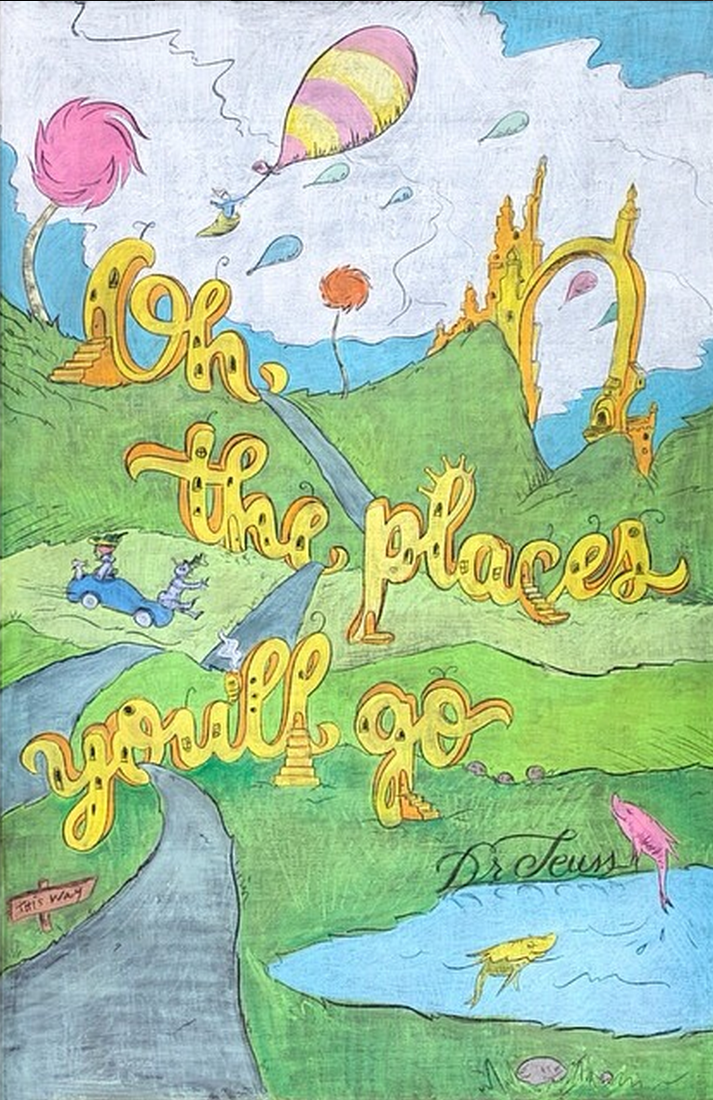 Oh,
the places
you'll go
Dr Seuss
This Way